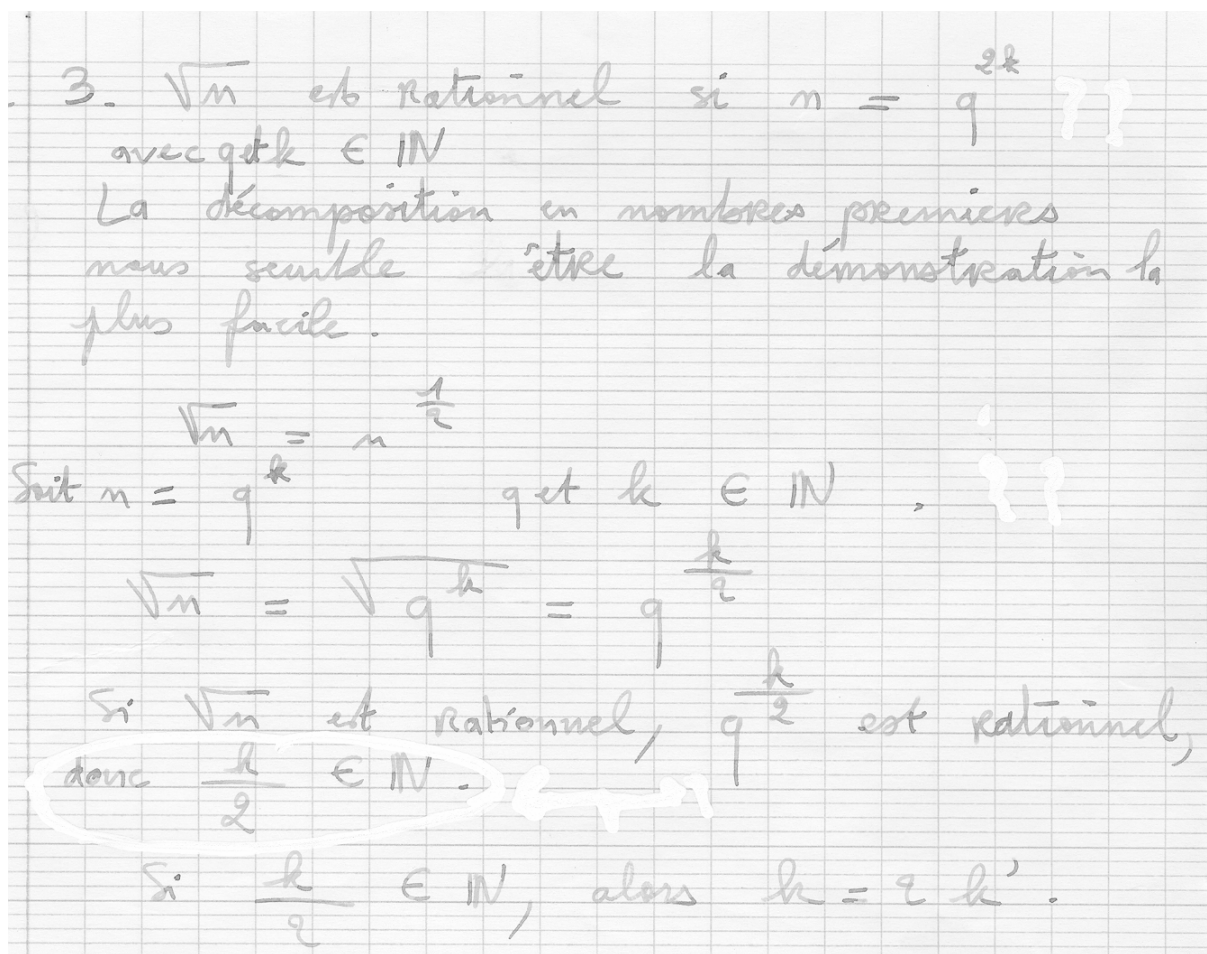 3. √n est rationnel si n = q^{2k} ??
avec q et k ∈ IN
La décomposition en nombres premiers
nous semble être la démonstration la
plus facile.
√n = n^{1/2}
Soit n = q^k q et k ∈ IN. ??
√n = √(q^k) = q^{k/2}
Si √n est rationnel, q^{k/2} est rationnel,
donc k/2 ∈ IN.
Si k/2 ∈ IN, alors k = 2 k'.